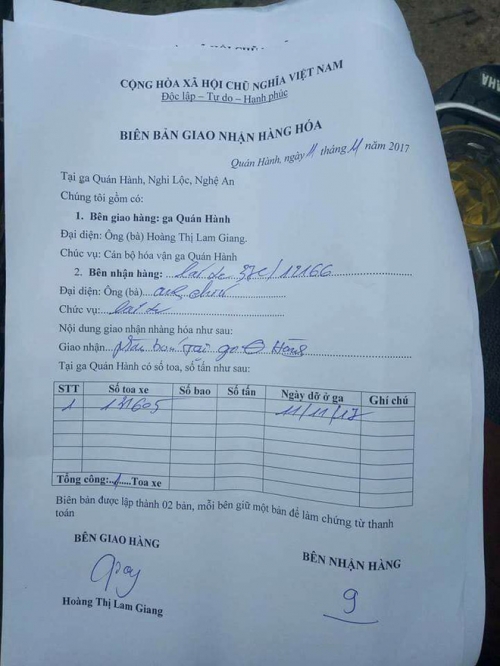 CỘNG HÒA XÃ HỘI CHỦ NGHĨA VIỆT NAM
Độc lập – Tự do – Hạnh phúc
BIÊN BẢN GIAO NHẬN HÀNG HÓA
Quán Hành, ngày 11 tháng 11 năm 2017
Tại ga Quán Hành, Nghi Lộc, Nghệ An
Chúng tôi gồm có:
1. Bên giao hàng: ga Quán Hành
Đại diện: Ông (bà) Hoàng Thị Lam Giang.
Chức vụ: Cán bộ hóa vận ga Quán Hành
2. Bên nhận hàng: lái xe 37C/17166
Đại diện: Ông (bà)
Chức vụ: lái xe
Nội dung giao nhận nhàng hóa như sau:
Giao nhận
Tại ga Quán Hành có số toa, số tấn như sau:
STT Số toa xe Số bao Số tấn Ngày dỡ ở ga Ghi chú
1 131605 11/11/17
Tổng cộng: 1 Toa xe
Biên bản được lập thành 02 bản, mỗi bên giữ một bản để làm chứng từ thanh
toán
BÊN GIAO HÀNG BÊN NHẬN HÀNG
Hoàng Thị Lam Giang
YAMAHA